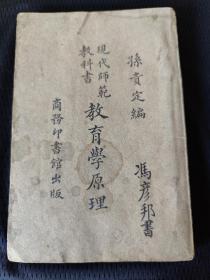 孫貴定編
現代師範
教科書
教育學原理
商務印書館出版
馮彥邦書